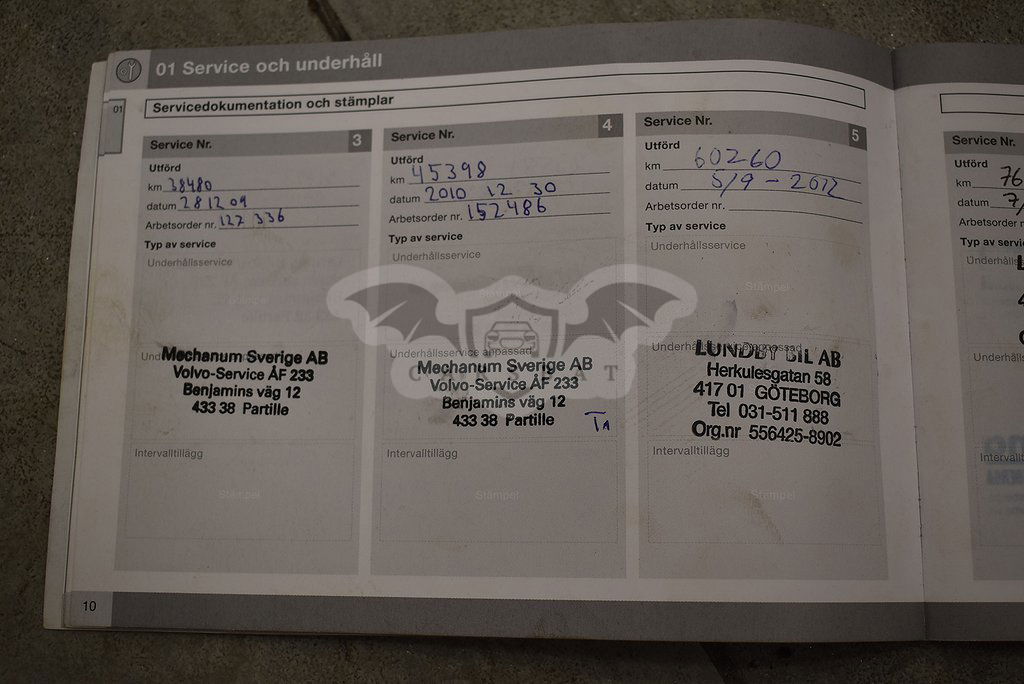 01 Service och underhåll
01
Servicedokumentation och stämplar
Service Nr. 3
Utförd
km 38480
datum 281209
Arbetsorder nr. 127 336
Typ av service
Underhållsservice
Mechanum Sverige AB
Volvo-Service ÅF 233
Benjamins väg 12
433 38 Partille
Intervalltillägg
Stämpel
Service Nr. 4
Utförd
km 45398
datum 2010 12 30
Arbetsorder nr. 152486
Typ av service
Underhållsservice
Underhållsservice anpassad
Mechanum Sverige AB
Volvo-Service ÅF 233
Benjamins väg 12
433 38 Partille
Intervalltillägg
Stämpel
Service Nr. 5
Utförd
km 60260
datum 5/9 - 2012
Arbetsorder nr.
Typ av service
Underhållsservice
Stämpel
Underhållsservice anpassad
LUNDBY BIL AB
Herkulesgatan 58
417 01 GÖTEBORG
Tel 031-511 888
Org.nr 556425-8902
Intervalltillägg
Stämpel
Service Nr.
Utförd
km 76
datum 7/
Arbetsorder nr
Typ av servi
Underhålls
Underhålls
Intervallt
10